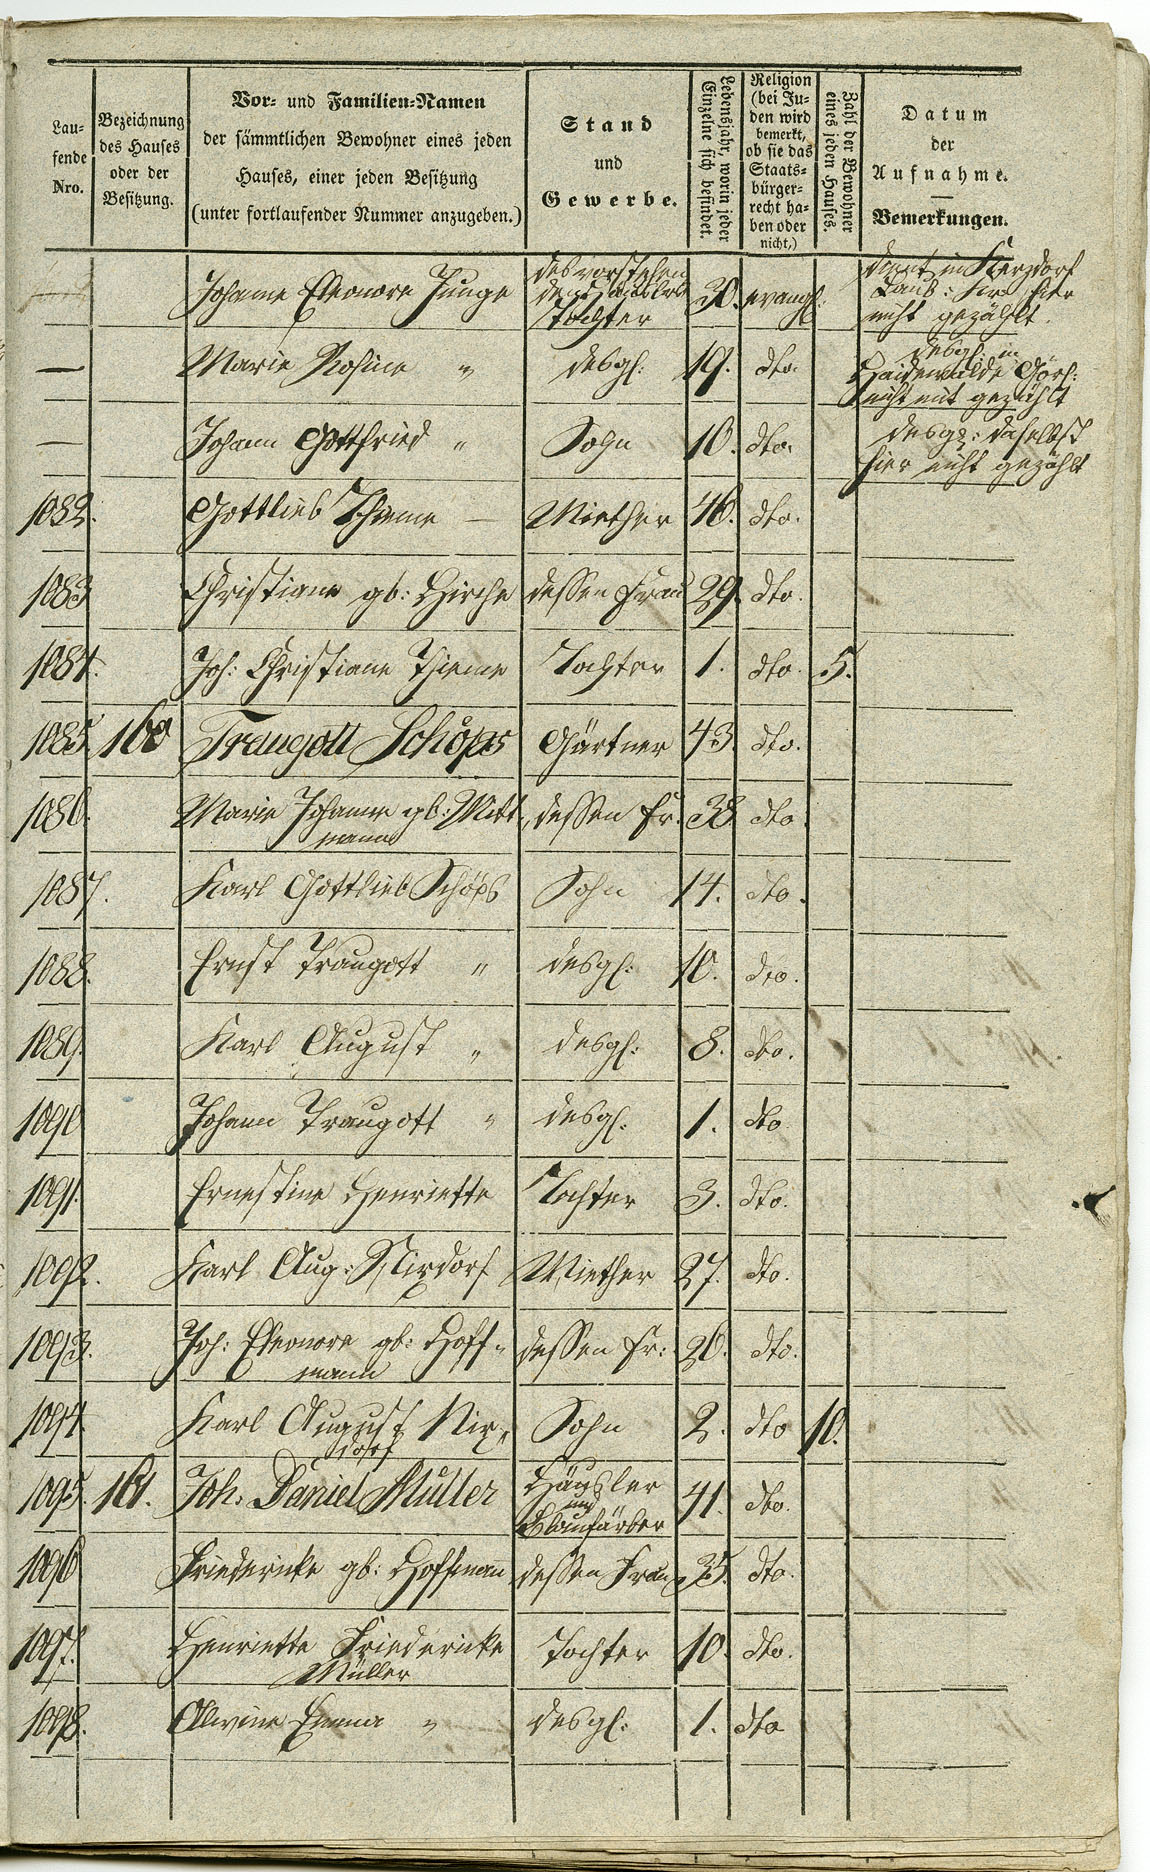 Lau-
fende
Nro.
Bezeichnung
des Hauses
oder der
Besitzung.
Vor- und Familien-Namen
der sämmtlichen Bewohner eines jeden
Hauses, einer jeden Besitzung
(unter fortlaufender Nummer anzugeben.)
Stand
und
Gewerbe.
Lebensjahr, worin jeder
Einzelne sich befindet.
Religion
(bei Ju-
den wird
bemerkt,
ob sie das
Staats-
bürger-
recht ha-
ben oder
nicht.)
Zahl der Bewohner
eines jeden Hauses.
Datum
der
Aufnahme.
Bemerkungen.
Johanne Eleonore Junge
des vorstehen
den Häuslers
Tochter
30. evangl.
dient in Kerzdorf
Laub: hier
nicht gezählt.
— Marie Rosine „ desgl: 19. dto.
desgl. in
Haidewalde Görl:
nicht mit gezählt
— Johann Gottfried „ Sohn 10. dto.
desgl: daselbst
hier nicht gezählt
1082. Gottlieb Thieme — Miether 46. dto.
1083 Christiane gb: Hirche dessen Frau 29. dto.
1084. Joh: Christiane Thieme Tochter 1. dto. 5.
1085. 160 Traugott Schöps Gärtner 43. dto.
1086. Marie Johanne gb: Mitt, dessen Fr. 38. dto.
mann
1087. Karl Gottlieb Schöps Sohn 14. dto.
1088. Ernst Traugott „ desgl: 10. dto.
1089. Karl August „ desgl: 8. dto.
1090 Johann Traugott „ desgl: 1. dto
1091. Ernestine Henriette Tochter 3. dto.
1092. Karl Aug: Nixdorf Miether 27. dto.
1093. Joh: Eleonore gb: Hoff- dessen Fr: 26. dto.
mann
1094. Karl August Nix- Sohn 2. dto 10.
dorf
1095. 161. Joh: Daniel Müller Häusler 41. dto.
und
Blaufärber
1096 Friedericke gb: Hoffmann dessen Frau 35. dto.
1097. Henriette Friedericke Tochter 10. dto.
Müller
1098. Alwine Emma „ desgl: 1. dto